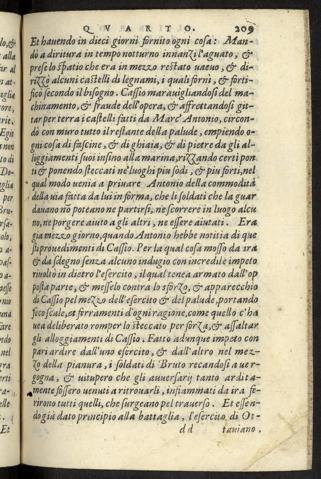 QVARTO. 209
Et hauendo in dieci giorni fornito ogni cosa: Man-
dò a diritura in tempo notturno innanzi l'aguato, &
prese lo spatio che era in mezzo restato uacuo, & di-
rizzò alcuni castelli di legnami, i quali fornì, & forti-
ficò secondo il bisogno. Cassio marauigliandosi del ma-
chinamento, & fraude dell'opera, & affrettandosi git-
tar per terra i castelli fatti da Marc'Antonio, circon-
dò con muro tutto il restante della palude, empiendo o-
gni cosa di fascine, & di ghiaia, & di pietre da gli al-
loggiamenti suoi insino alla marina, rizzando certi pon
ti & ponendo steccati ne luoghi piu sodi, & piu forti, nel
qual modo uenia a priuare Antonio della commodità
della uia fatta da lui in forma, che li soldati che la guar
dauano nō poteano ne partirsi, ne scorrere in luogo alcu
no, ne porgere aiuto a gli altri, ne essere aiutati. Era
gia mezzo giorno, quando Antonio hebbe notitia di que
sti prouedimenti di Cassio. Per la qual cosa mosso da ira
& da sdegno senza alcuno indugio con incredile impeto
riuolto in dietro l'esercito, il qual tenea armato dall'op
posta parte, & messelo contra lo sforzo, & apparecchio
di Cassio pel mezzo dell'esercito & del palude, portando
fico scale, et ferramenti d'ogni ragione, come quello c'ha
uea deliberato romper lo steccato per forza, & assaltar
gli alloggiamenti di Cassio. Fatto adunque impeto con
pari ardire dall'uno esercito, & dall'altro nel mez-
zo della pianura, i soldati di Bruto recandosi a uer
gogna, & uitupero che gli auuersarij tanto ardita-
mente fossero uenuti a ritrouarli, infiammati da ira fe
rirono tutti quelli, che surgeano pel trauerso. Et essen-
do già dato principio alla battaglia, l'esercito di Ot-
dd tauiano.